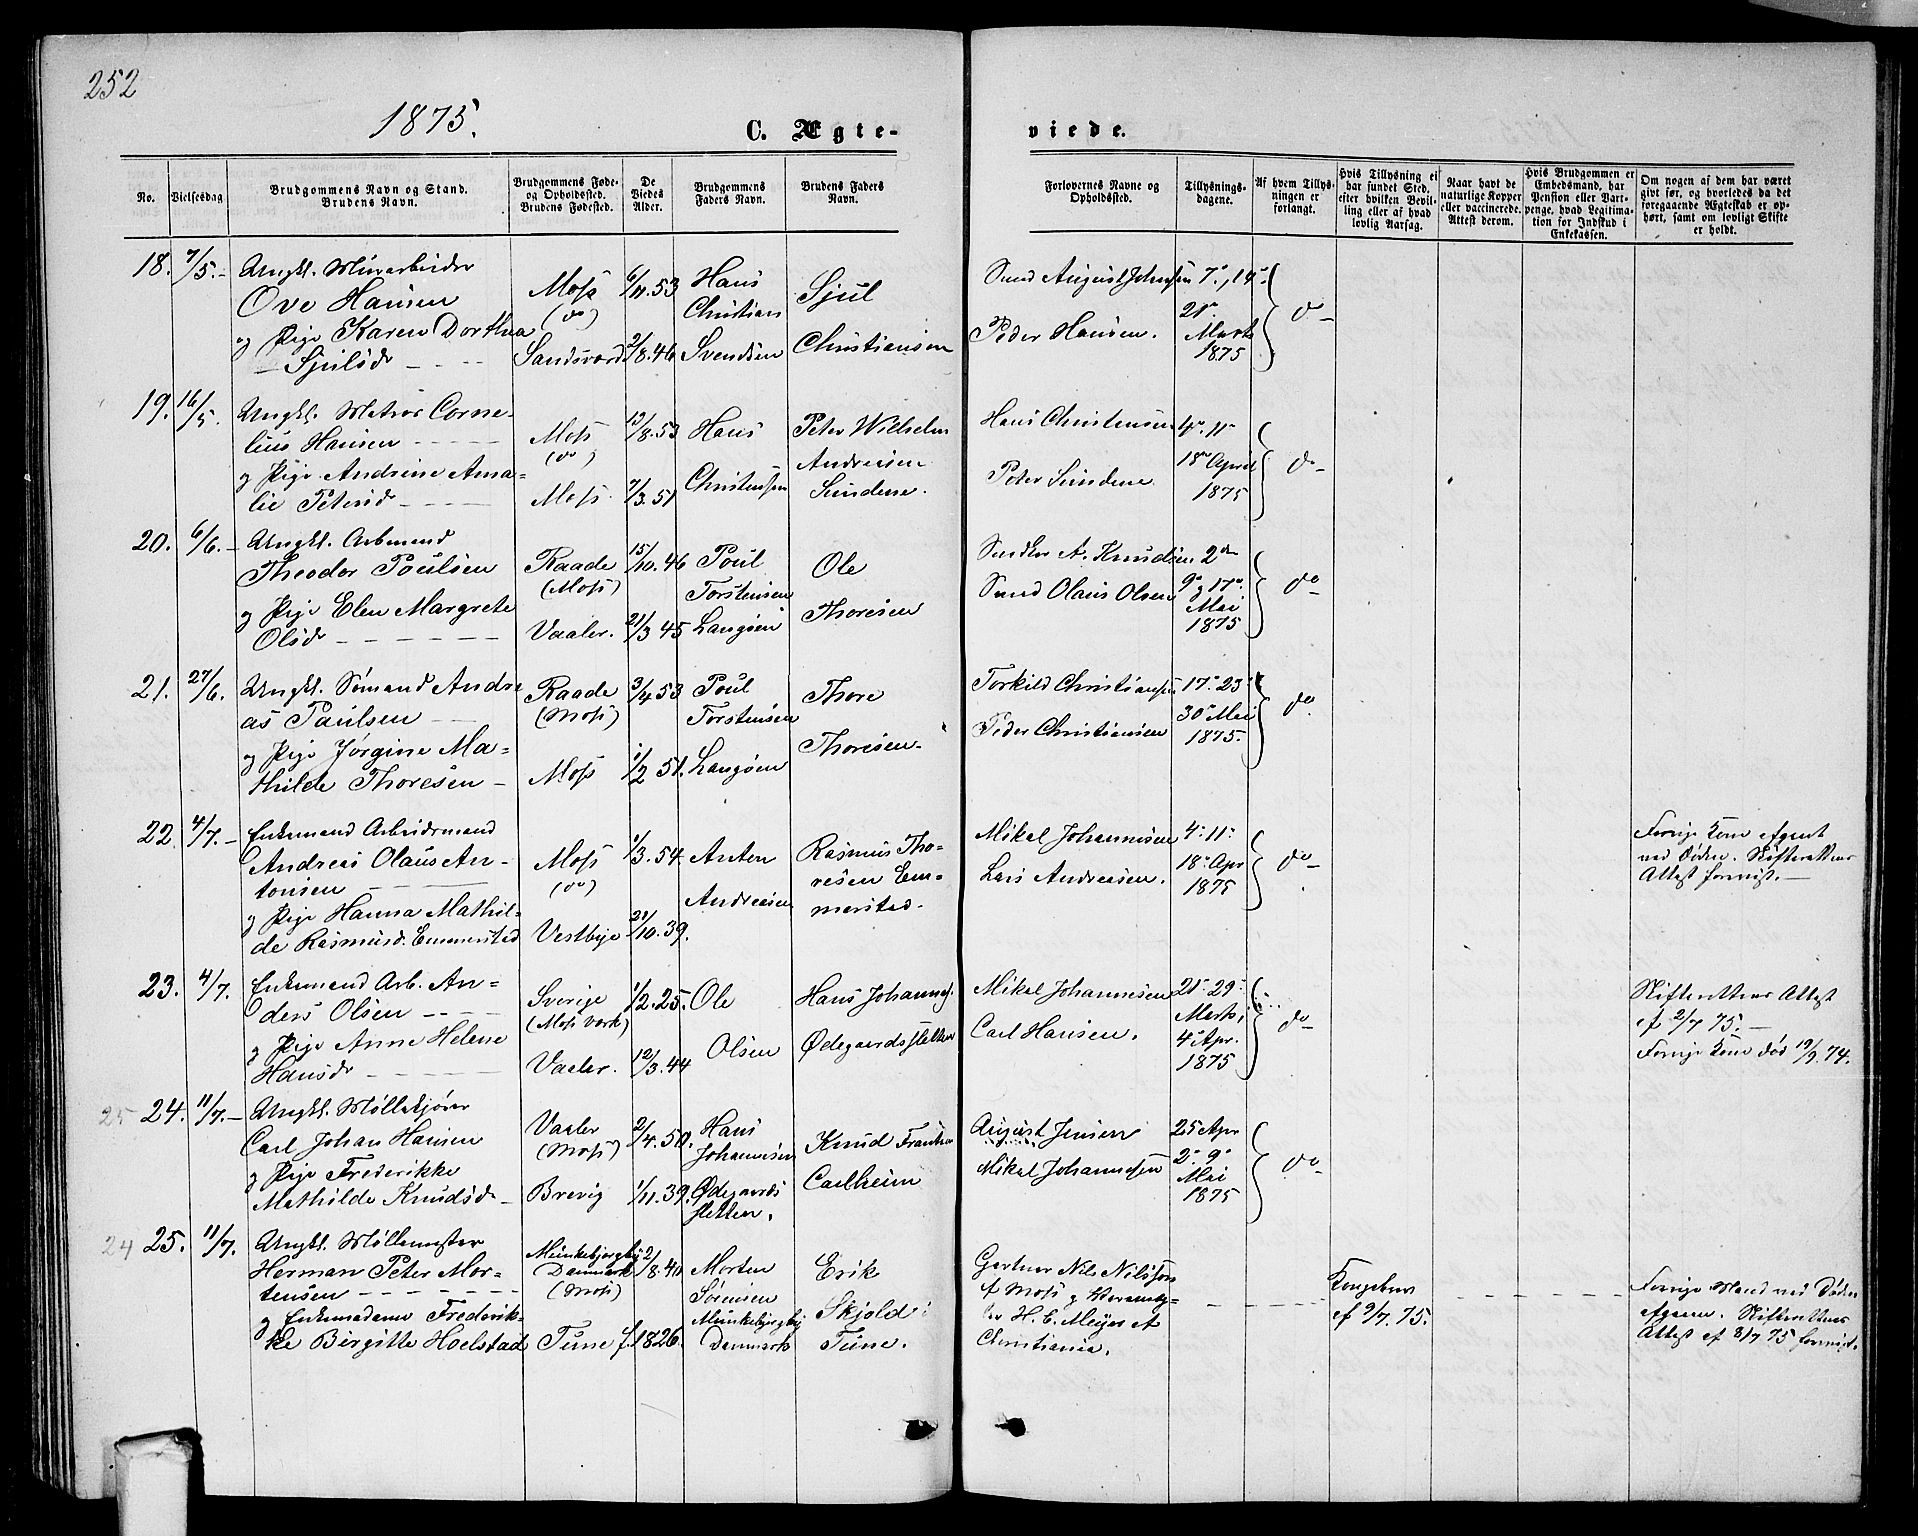 252
1875.
C. Ægte-
viede.
No.
Vielsesdag
Brudgommens Navn og Stand.
Brudens Navn.
Brudgommens Føde-
og Opholdsted.
Brudens Fødested.
De
Viedes
Alder.
Brudgommens
Faders Navn.
Brudens Faders
Navn.
Forlovernes Navne og
Opholdssted.
Tillysnings-
dagene.
Af hvem Tillys-
ningen er
forlangt.
Hvis Tillysning ei
har fundet Sted,
efter hvilken Bevil-
ling eller af hvad
lovlig Aarsag.
Naar havt de
naturlige Kopper
eller vaccinerede.
Attest derom.
Hvis Brudgommen er
Embedsmand, har
Pension eller Vart-
penge, hvad Legitima-
tion for Indskud i
Enkekassen.
Om nogen af dem har været
gift før, og hvorledes da det
foregaaende Ægteskab er op-
hørt, samt om lovligt Skifte
er holdt.
18. 7/5.-
Ungkl. Murarbeider
Ove Hansen
og Pige Karen Dorthea
Sjulsd.
Moss
(do)
6/11.53
2/8.46
Hans
Christian
Svendsen
Sjul
Christiansen
August Johnsen
Peder Hansen.
7de, 14de
21de
Marts
1875
do
19. 16/5.
Ungkl. Matros Corne-
lius Hansen
og Pige Andrine Ama-
lie Petersd.
Moss
(do)
Moss.
13/8.53
7/3.51
Hans
Christensen
Peter Wilhelm
Andreasen
Sundene.
Hans Christensen
Peter Sundene
4de 11te
18de April
1875
do
20. 6/6.-
Ungkl. Arbmand
Theodor Poulsen
og Pige Elen Margrete
Olsd.
Raade
(Moss)
Vaaler.
15/10.46
21/3 45
Poul
Torstensen
Langøen
Ole
Thoresen
A. Knudsen
Olaus Olsen
2den
9de og 17de
Mai
1875
do
21. 27/6.
Ungkl. Sømand Andre
as Paulsen
og Pige Jørgine Ma-
thilde Thoresen
Raade
(Moss)
Moss
3/4 53
1/2 51.
Poul
Torstensen
Langøen
Thore
Thoresen.
Torkild Christiansen
Peder Christiansen
17de 23de
30te Mai
1875.
do
22. 4/7.-
Enkemand Arbeidsmand
Andreas Olaus An-
tonsen
og Pige Hanna Mathil-
de Rasmusd. Emmerstad
Moss
(do)
Vestbye
1/3.54.
21/10.39.
Anton
Andreasen
Rasmus Tho-
resen Em-
merstad.
Mikal Johannesen
Lars Andreasen.
4de 11te
18de Apr
1875
do
Forrige Kone afgaaet
ved Døden. Skifterettens
Attest forevist.
23. 4/7.
Enkemand Arb. An-
ders Olsen
og Pige Anne Helene
Hansd.
Sverige
(Moss Værk)
Vaaler.
1/2.25.
12/3.44
Ole
Olsen
Hans Johannes.
Ødegaardsstetten
Mikal Johannesen
Carl Hansen.
21de 29de
Marts,
4de Apr.
1875
do
Skifterettens Attest
af 2/7 75.
Forrige Kone død 19/9.74.
25 24. 11/7.-
Ungkl. Møllekjører
Carl Johan Hansen
og Pige Frederikke
Mathilde Knudsd.
Vaaler
(Moss)
Brevig
2/4.50.
1/11.39.
Hans
Johannesen
Ødegaards
sletten.
Knud
Carlheim
August Jensen
Mikal Johannesen
25 Apr
2de 9de
Mai
1875
do
24 25. 11/7.
Ungkl. Møllemester
Herman Peter Mor-
tensen
og Enkemadame Frederik-
ke Birgitte Hoelstad
Munkebjergby
Danmark
(Moss)
Tune
2/8.40
f. 1826.
Morten
Sørensen
Munkebjergby
Danmark
Erik
Skjold i
Tune.
Gartner Nils Nilssen
af Moss og
H. E. Meijer af
Christiania.
Kongebrev
af 9/7. 75.
Forrige Mand ved Døden
afgaaen. Skifterettens
Attest af 8/7 75 forevist.